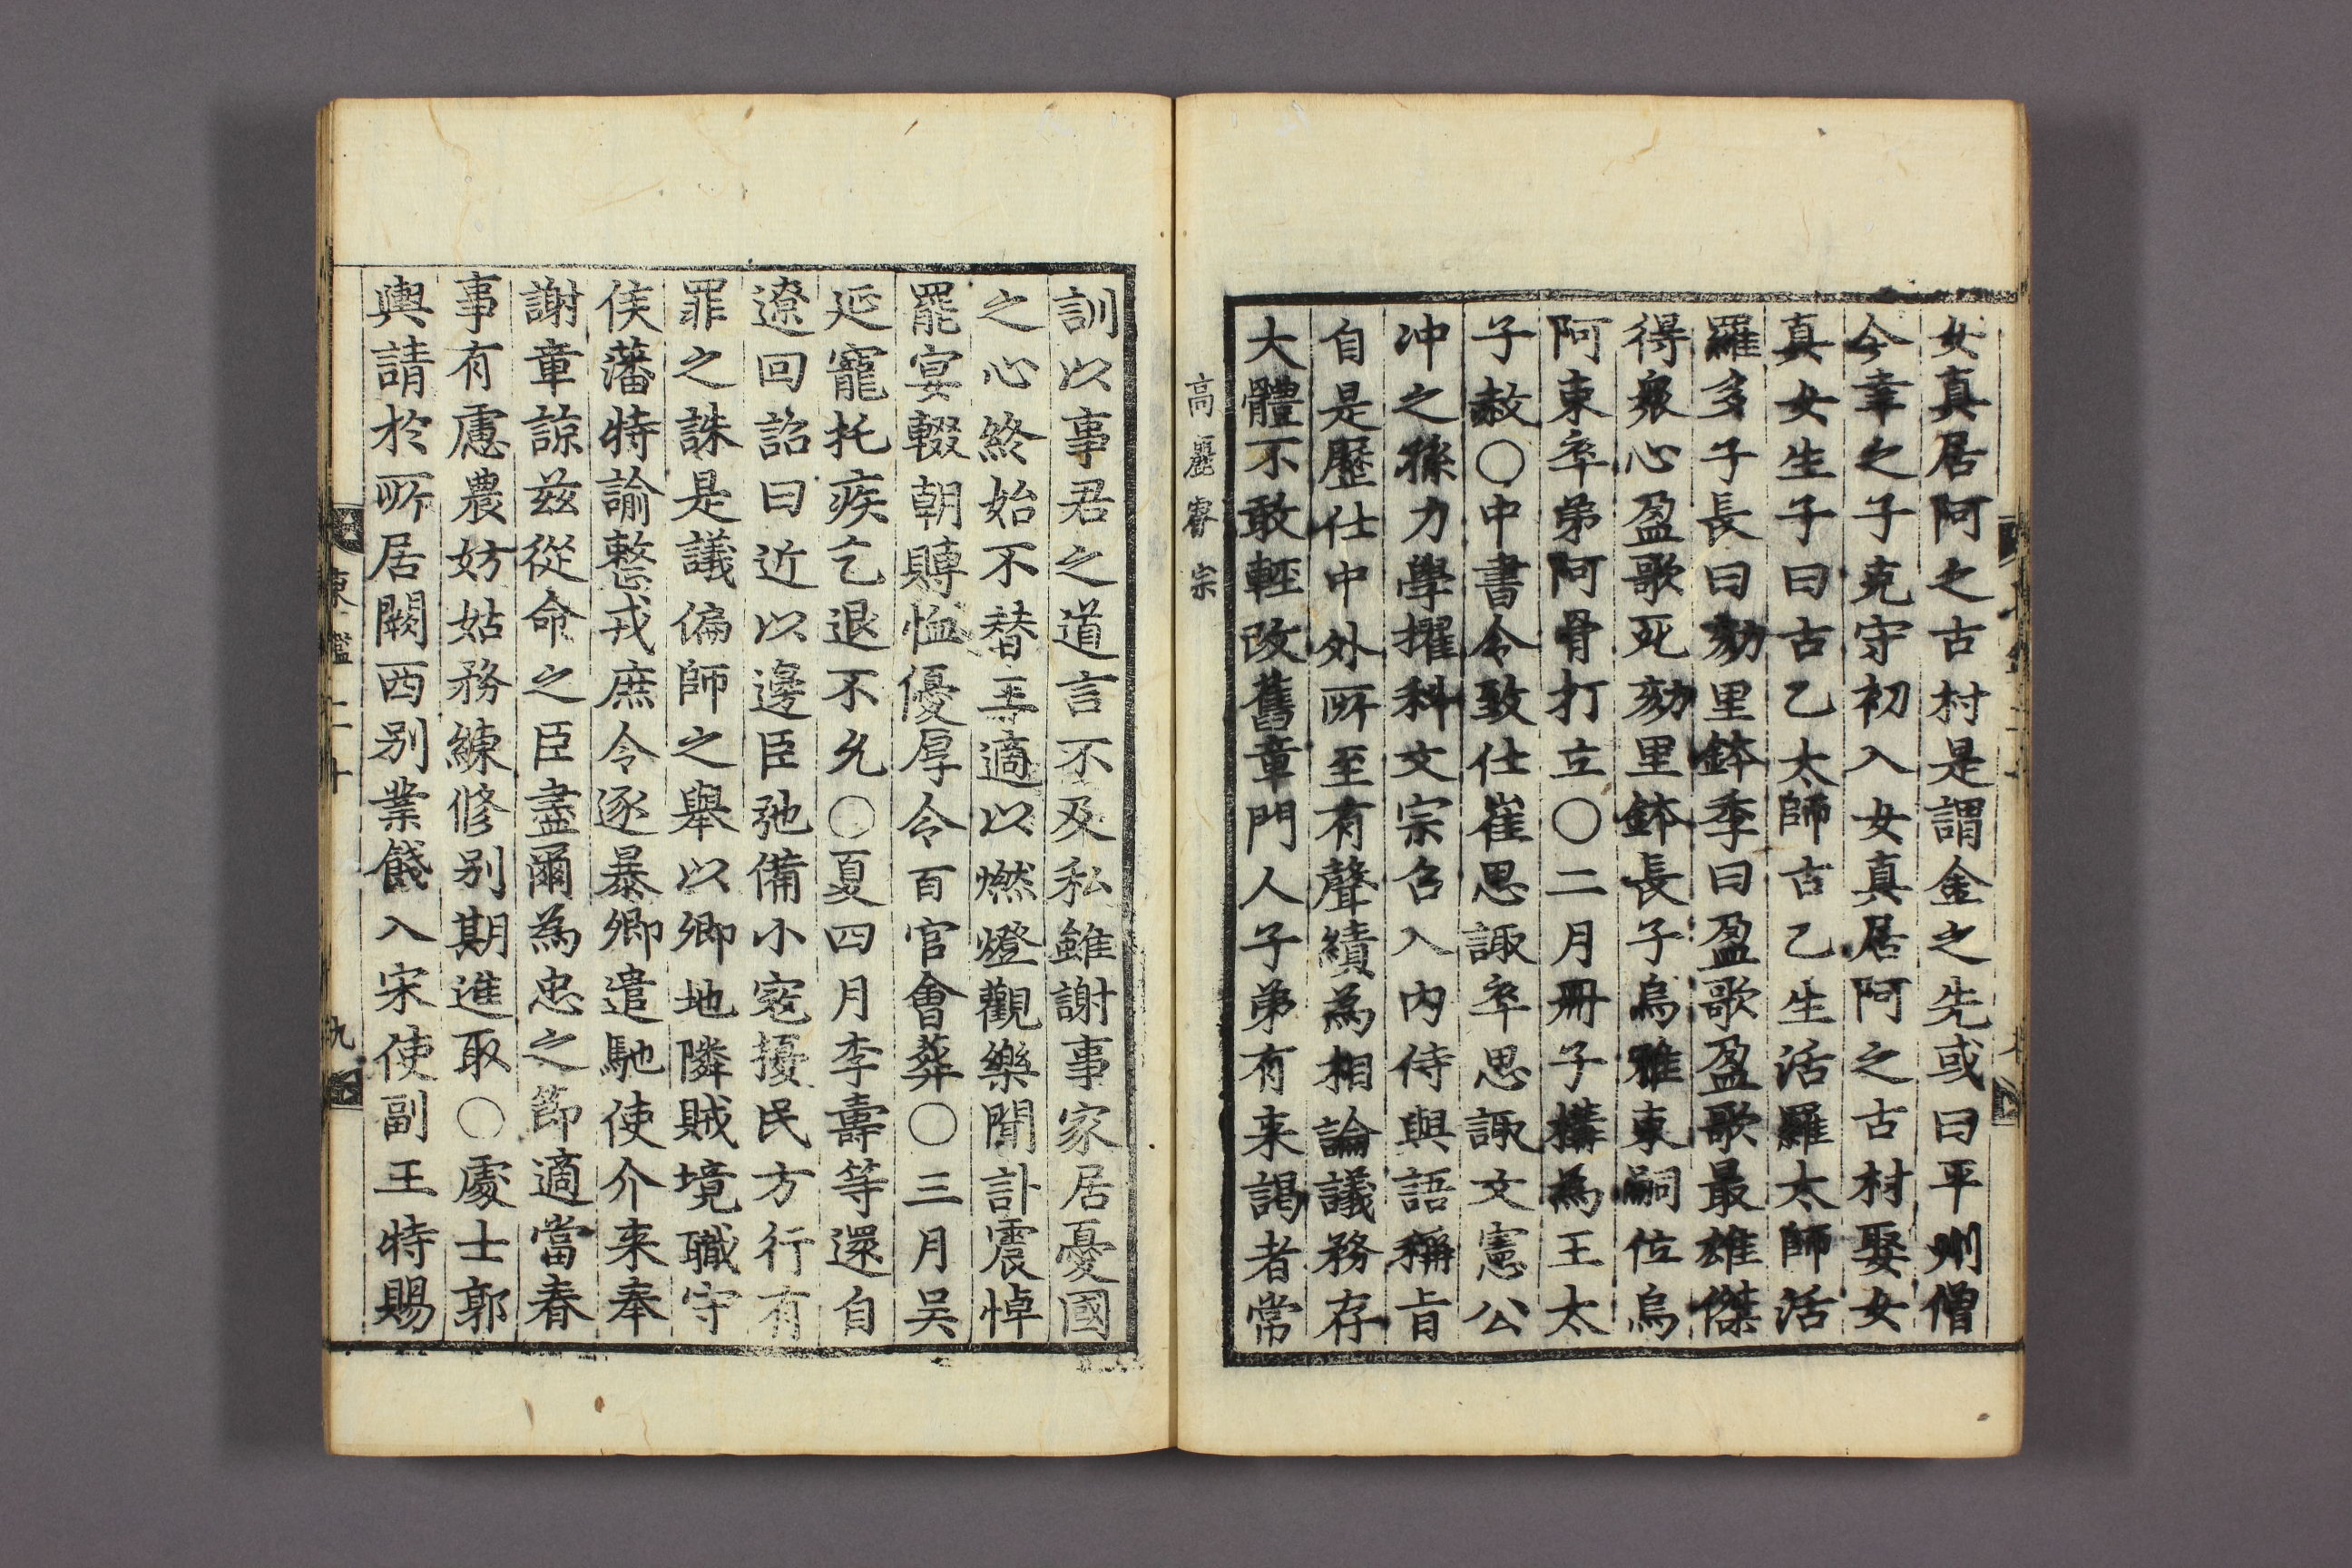 女真居阿之古村是謂金之先或曰平州僧
今幸之子克守初入女真居阿之古村娶女
真女生子曰古乙太師古乙生活羅太師活
羅多子長曰劾里鉢季曰盈歌盈歌最雄傑
得衆心盈歌死劾里鉢長子烏雅束嗣位烏
阿束卒弟阿骨打立〇二月冊子構為王太
子赦〇中書令致仕崔思諏卒思諏文憲公
冲之孫力學擢科文宗召入内侍與語稱旨
自是歷仕中外所至有聲績為相論議務存
大體不敢輕改舊章門人子弟有来謁者常
高麗睿宗
訓以事君之道言不及私雖謝事家居憂國
之心終始不替王適以燃燈觀樂聞訃震悼
罷宴輟朝賻恤優厚令百官會葬〇三月吴
延寵托疾乞退不允〇夏四月李壽等還自
遼回詔曰近以邊臣弛備小寇擾民方行有
罪之誅是議偏師之舉以卿地隣賊境職守
侯藩特諭整戎庶令逐暴卿遣馳使介来奉
謝章諒兹從命之臣盡爾為忠之節適當春
事有慮農妨姑務練修别期進取〇處士郭
輿請於所居闕西别業餞入宋使副王特賜
東鑑二十
九